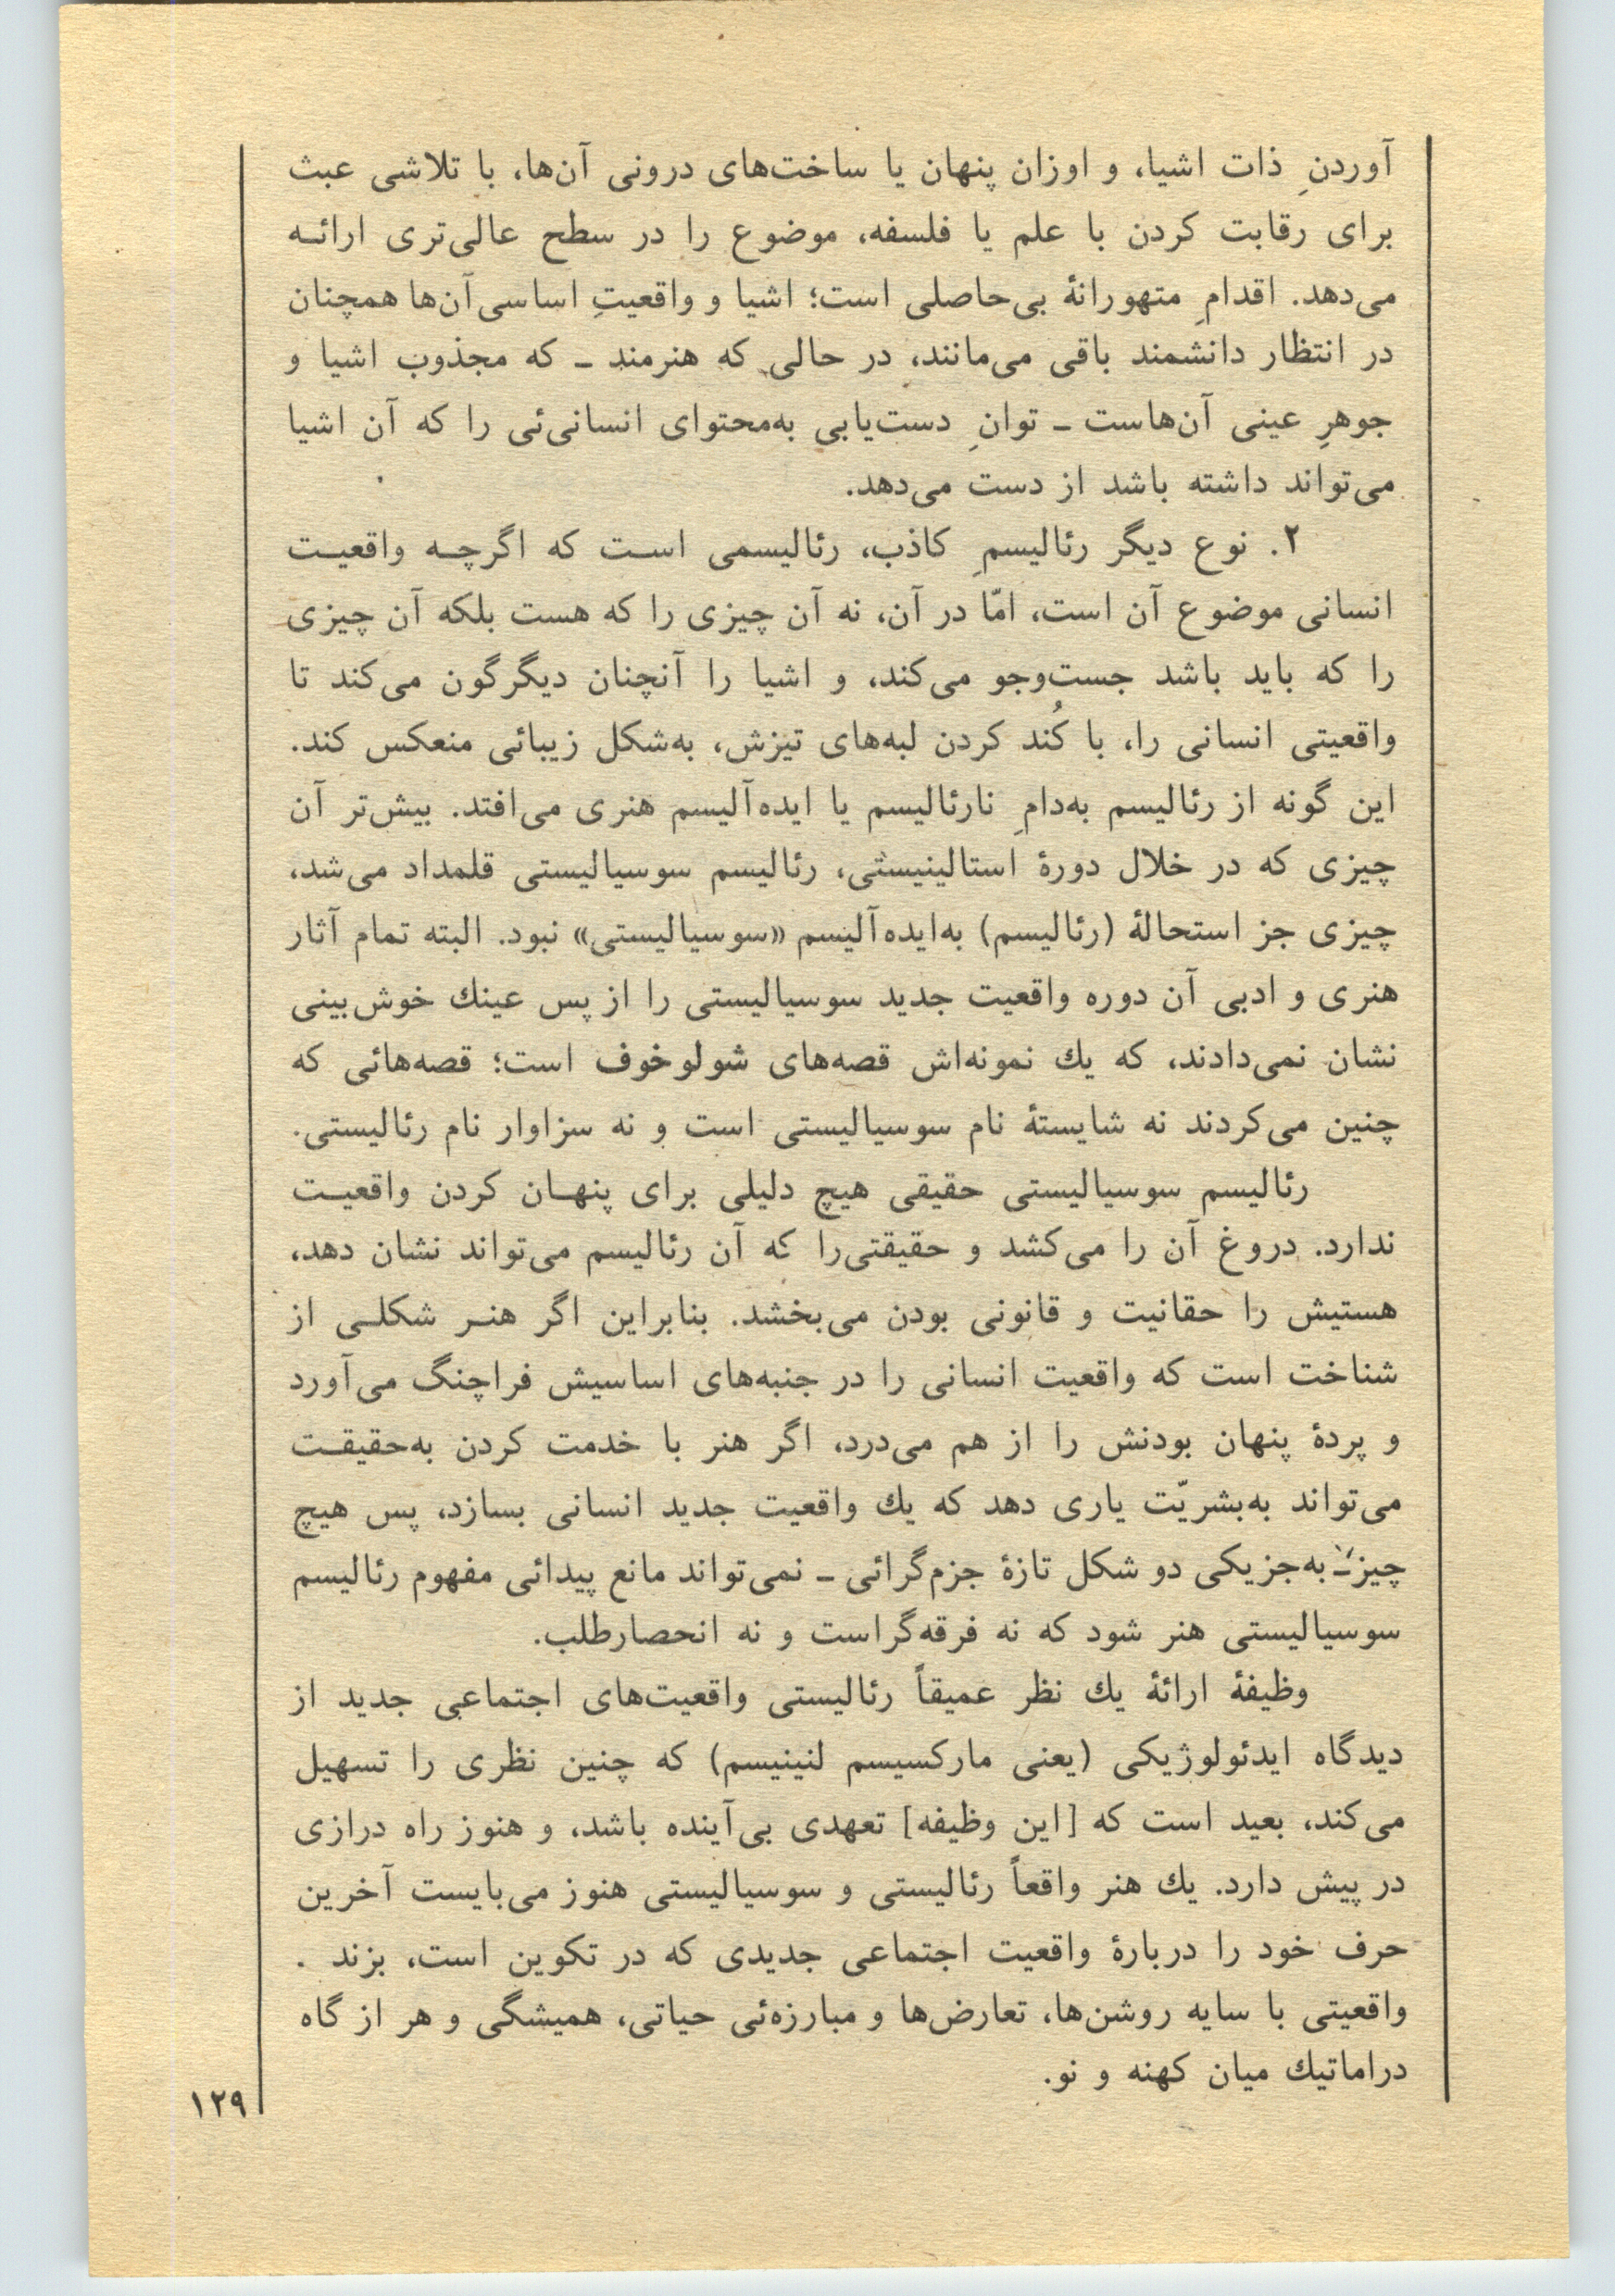 آوردنِ ذات اشیا، و اوزان پنهان یا ساخت‌های درونی آن‌ها، با تلاشی عبث
برای رقابت کردن با علم یا فلسفه، موضوع را در سطح عالی‌تری ارائه
می‌دهد. اقدامِ متهورانهٔ بی‌حاصلی است؛ اشیا و واقعیتِ اساسی آن‌ها همچنان
در انتظار دانشمند باقی می‌مانند، در حالی که هنرمند ـ که مجذوب اشیا و
جوهرِ عینی آن‌هاست ـ توانِ دست‌یابی به‌محتوای انسانی‌ئی را که آن اشیا
می‌تواند داشته باشد از دست می‌دهد.
۲. نوع دیگر رئالیسمِ کاذب، رئالیسمی است که اگرچه واقعیت
انسانی موضوع آن است، امّا در آن، نه آن چیزی را که هست بلکه آن چیزی
را که باید باشد جست‌وجو می‌کند، و اشیا را آنچنان دیگرگون می‌کند تا
واقعیتی انسانی را، با کُند کردن لبه‌های تیزش، به‌شکل زیبائی منعکس کند.
این گونه از رئالیسم به‌دامِ نارئالیسم یا ایده‌آلیسم هنری می‌افتد. بیش‌تر آن
چیزی که در خلال دورهٔ استالینیستی، رئالیسم سوسیالیستی قلمداد می‌شد،
چیزی جز استحالهٔ (رئالیسم) به‌ایده‌آلیسم «سوسیالیستی» نبود. البته تمام آثار
هنری و ادبی آن دوره واقعیت جدید سوسیالیستی را از پس عینك خوش‌بینی
نشان نمی‌دادند، که یك نمونه‌اش قصه‌های شولوخوف است؛ قصه‌هائی که
چنین می‌کردند نه شایستهٔ نام سوسیالیستی است و نه سزاوار نام رئالیستی.
رئالیسم سوسیالیستی حقیقی هیچ دلیلی برای پنهان کردن واقعیت
ندارد. دروغ آن را می‌کشد و حقیقتی‌را که آن رئالیسم می‌تواند نشان دهد،
هستیش را حقانیت و قانونی بودن می‌بخشد. بنابراین اگر هنر شکلی از
شناخت است که واقعیت انسانی را در جنبه‌های اساسیش فراچنگ می‌آورد
و پردهٔ پنهان بودنش را از هم می‌درد، اگر هنر با خدمت کردن به‌حقیقت
می‌تواند به‌بشریّت یاری دهد که یك واقعیت جدید انسانی بسازد، پس هیچ
چیز ـ به‌جز یکی دو شکل تازهٔ جزم‌گرائی ـ نمی‌تواند مانع پیدائی مفهوم رئالیسم
سوسیالیستی هنر شود که نه فرقه‌گراست و نه انحصارطلب.
وظیفهٔ ارائهٔ یك نظر عمیقاً رئالیستی واقعیت‌های اجتماعی جدید از
دیدگاه ایدئولوژیکی (یعنی مارکسیسم لنینیسم) که چنین نظری را تسهیل
می‌کند، بعید است که [این وظیفه] تعهدی بی‌آینده باشد، و هنوز راه درازی
در پیش دارد. یك هنر واقعاً رئالیستی و سوسیالیستی هنوز می‌بایست آخرین
حرف خود را دربارهٔ واقعیت اجتماعی جدیدی که در تکوین است، بزند .
واقعیتی با سایه روشن‌ها، تعارض‌ها و مبارزه‌ئی حیاتی، همیشگی و هر از گاه
دراماتیك میان کهنه و نو.
۱۲۹